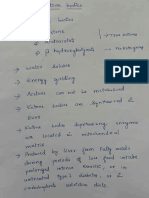 Ketone bodies
Ketone bodies
① Acetone
② Acetoacetate
③ β hydroxybutyrate
→ Water soluble
→ Energy yielding
→ Acetone can not be metabolized
→ Ketone bodies are synthesized in
liver
→ Ketone bodies synthesizing enzymes
are located in mitochondrial
matrix
→ Produced by liver from fatty acids
during periods of low food intake
prolonged intense exercise, or in
untreated type 1 diabetes, &
carbohydrate restrictive diets.